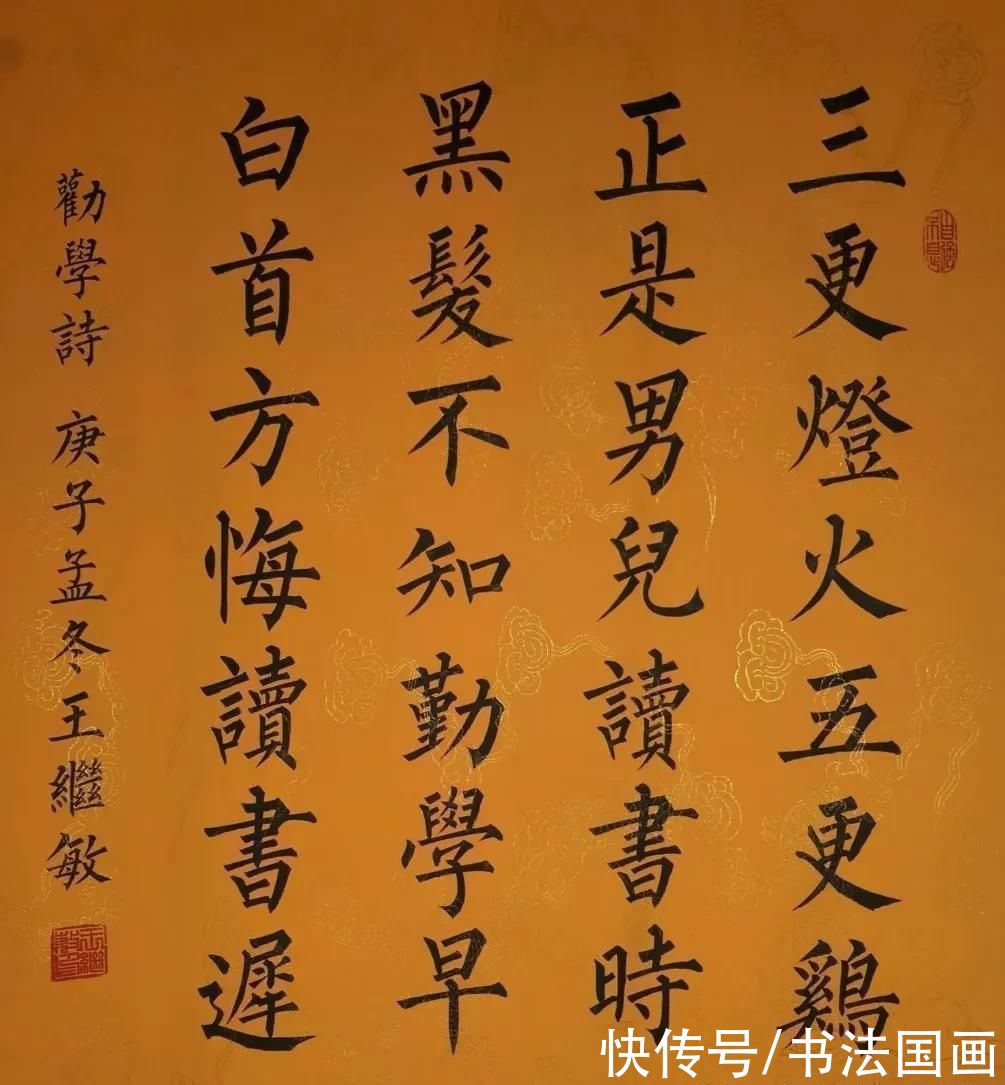 三更燈火五更鷄
正是男兒讀書時
黑髮不知勤學早
白首方悔讀書遲
勸學詩 庚子孟冬王繼敏
自強不息
王繼敏印
快传号/书法国画